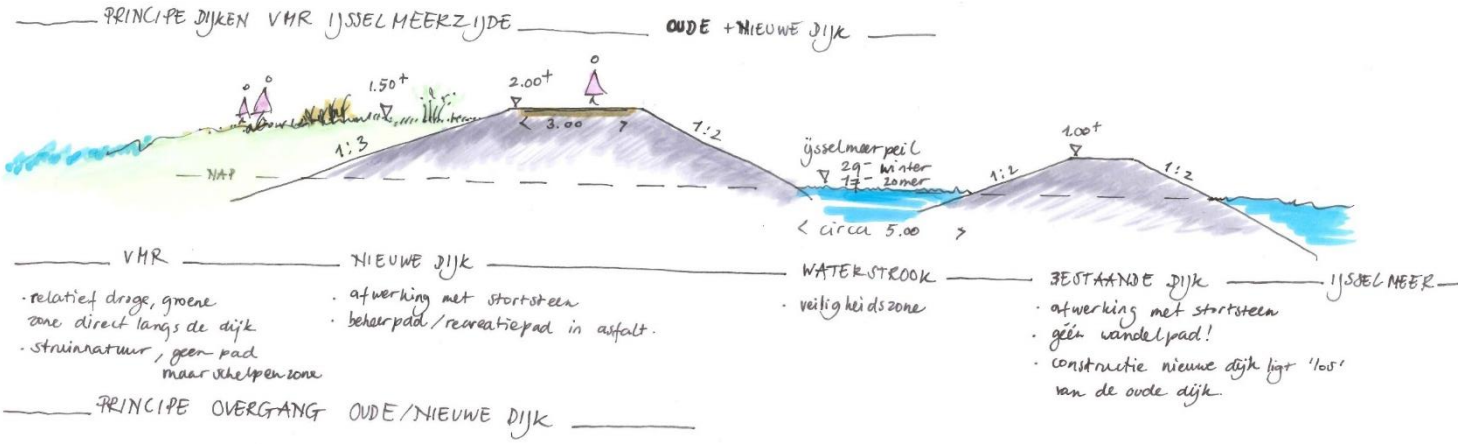 PRINCIPE DIJKEN VMR IJSSELMEERZIJDE
OUDE + NIEUWE DIJK
1.50+
2.00+
< 3.00 >
1:3
1:2
NAP
ijsselmeerpeil
29- winter
17- zomer
< circa 5.00 >
1:2
1.00+
1:2
VMR
· relatief droge, groene
zone direct langs de dijk
· struinnatuur, geen pad
maar schelpenzone
NIEUWE DIJK
· afwerking met stortsteen
· beheerpad/recreatiepad in asfalt.
WATERSTROOK
· veiligheidszone
BESTAANDE DIJK
· afwerking met stortsteen
· géén wandelpad!
· constructie nieuwe dijk ligt 'los'
van de oude dijk.
IJSSELMEER
PRINCIPE OVERGANG OUDE/NIEUWE DIJK